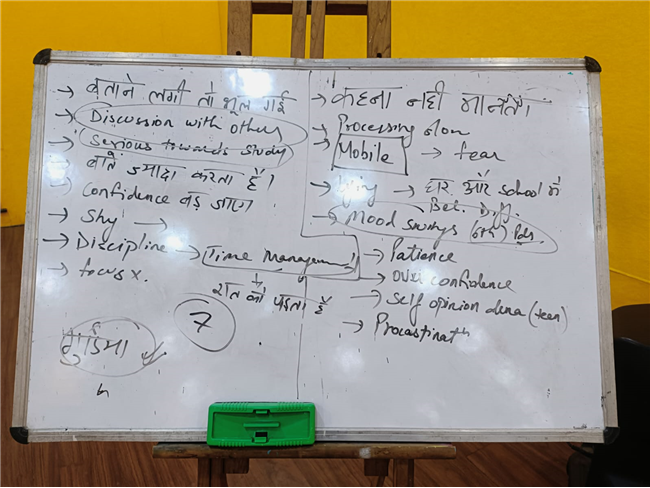 → बताने लगी तो भूल गई
→ Discussion with others
→ Serious towards study
→ बातें ज़्यादा करता है।
→ Confidence बढ़ जाए
→ Shy →
→ Discipline → Time Management
→ focus x.
रात को पढ़ता है
7
→ कहना नहीं मानते।
→ Processing slow
→ Mobile → fear
→ lying → घर और school में
Bet. Diff.
→ Mood swings
→ Patience
→ over confidence
→ Self opinion dena (teen)
→ Procastinath